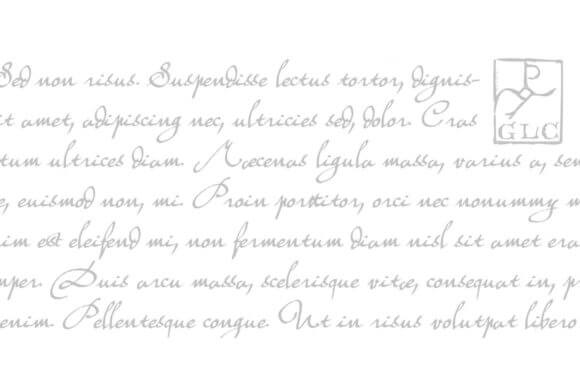 Sed non risus. Suspendisse lectus tortor, dignis-
it amet, adipiscing nec, ultricies sed, dolor. Cras
tum ultrices diam. Mæcenas ligula massa, varius a, sem
e, euismod non, mi. Proin porttitor, orci nec nonummy m
im est eleifend mi, non fermentum diam nisl sit amet era
mper. Duis arcu massa, scelerisque vitæ, consequat in, p
enim. Pellentesque congue. Ut in risus volutpat libero
P
GLC